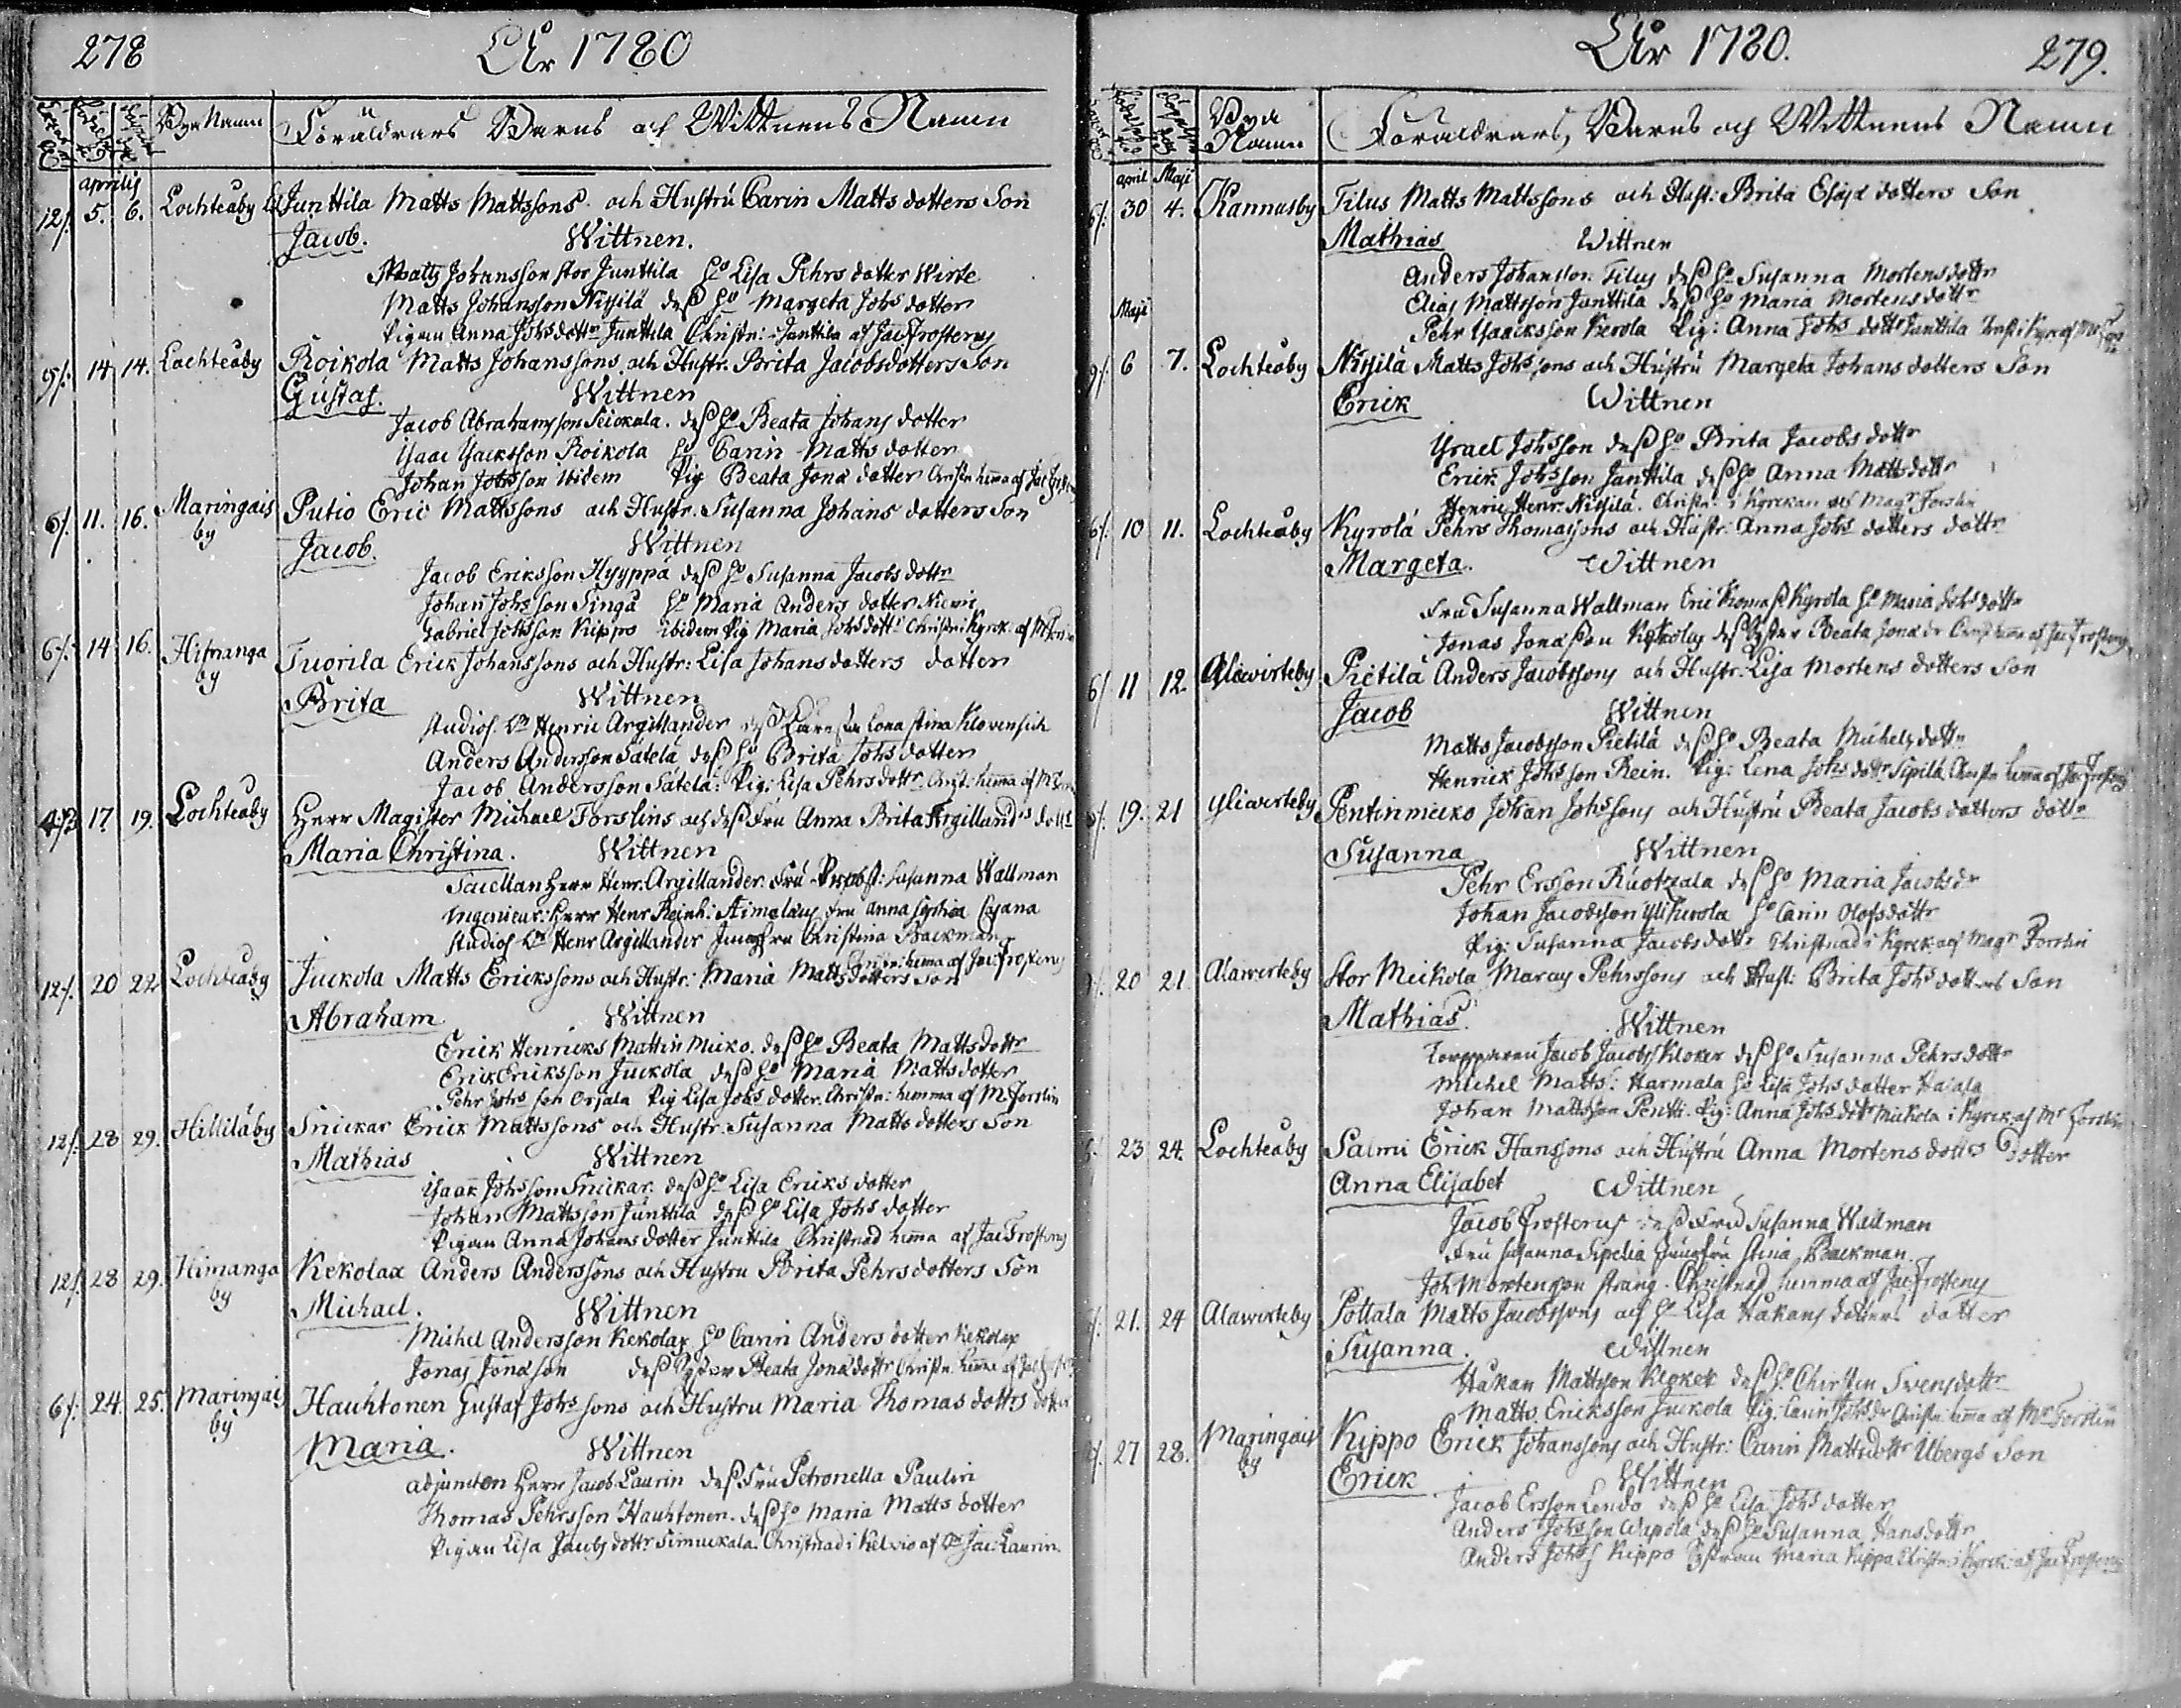 278
År 1780
Bya Namn Föräldrars Barns och Wittnens Namn
aprilis
12/. 5. 6. Lochteåby Junttila Matts Mattssons och Hustru Carin Matts dotters Son
Jacob. Wittnen.
Matts Johansson stor Junttila Ho Lisa Pehrs dotter Wirte
Matts Johansson Nissilä dess Ho Margeta Johs dotter
Pigan Anna Johs dottr Junttila Christn: i Junttila af Jac Frosterus
9/. 14 14. Lochteåby Roikola Matts Johanssons och Hustr. Brita Jacobsdotters Son
Gustaf. Wittnen
Jacob Abrahamsson Seickala. dess Ho Beata Johans dotter
Isaac Isacksson Roikola Ho Carin Matts dotter
Johan Johsson Ibidem Pig Beata Jona dotter Christn hema af Jac
6/. 11. 16. Maringais by Putio Eric Mattssons och Hustr. Susanna Johans dotters Son
Jacob. Wittnen
Jacob Eriksson Hyyppä dess Ho Susanna Jacobs dottr
Johan Johs son Singå Ho Maria Anders dotter
Gabriel Johsson Kippo ibidem Pig Maria Johs dottr Christn i Kyrck. af
6/. 14 16. Himanga by Tuorila Erick Johanssons och Hustr: Lisa Johansdotters dotter
Brita Wittnen
Studios. Dn Henric Argillander
Anders Andersson Sätelä dess Ho Brita Johs dotter
Jacob Andersson Sätelä. Pig: Lisa Pehrsdottr. Christ: hemma af
17 19. Lochteåby Herr Magister Michael Forslins och dess Fru Anna Brita Argilland:s dottr
Maria Christina. Wittnen
Capellan Herr Henr. Argillander. Fru Probst: Susanna Wallman
Ingenieur: Herr Henr Reinh: Aimelæus Fru Anna Sophia Cajana
Studios Dn Henr Argillander Jungfru Christina Backman
Christn: hema af Jac: Frosterus
12/. 20 22 Lochteåby Juckola Matts Erickssons och Hustr: Maria Matts dotters Son
Abraham Wittnen
Erick Henricks Mattin Micko. dess Ho Beata Matts dottr
Erick Ericksson Juckola dess Ho Maria Matts dotter
Pehr Johs son Orjala Pig Lisa Johs dotter. Christn: hemma af M. Forslin
12/. 28 29. Hilliläby Snickar Erick Mattssons och Hustr. Susanna Matts dotters Son
Mathias Wittnen
Isaak Johsson Snickar. dess Ho Lisa Ericks dotter
Johan Mattsson Junttila dess Ho Lisa Johs dotter
Pigan Anna Johans dotter Junttila Christnad hema af Jac Frosterus
12/. 28 29. Himanga by Kekolax Anders Anderssons och Hustru Brita Pehrsdotters Son
Michael. Wittnen
Michel Andersson Kekolax Ho Carin Anders dotter Kekolax
Jonas Jonasson dess Syster Beata Jona dottr Christn. hema af Jac
6/. 24. 25. Maringais by Hauhtonen Gustaf Johs sons och Hustru Maria Thomas dottrs dotter
Maria. Wittnen
adjuncten Herr Jacob Laurin dess Fru Petronella Paulin
Thomas Pehrsson Hauhtonen. dess Ho Maria Matts dotter
Pigan Lisa Jacobs dottr Simuckala. Christnad i Kelvio af Dn Jac: Laurin.
År 1780. 279.
Bya Namn Föräldrars, Barns och Wittnens Namn
april Maji
30 4. Kannusby Tilus Matts Mattssons och Hust: Brita Esaja dotters Son
Mathias Wittnen
Anders Johansson Tilus dess Ho Susanna Mortensdottr
Elias Mattsson Junttila dess Ho Maria Mortensdottr
Pehr Isaacksson Kerola Pig: Anna Johs dottr Junttila
Maji
9/. 6 7. Lochteåby Nissilä Matts Johssons och Hustru Margeta Johansdotters Son
Erick Wittnen
Israel Johsson dess Ho Brita Jacobs dottr
Erick Johsson Junttila dess Ho Anna Mattsdottr
Henric Henr. Nissilä. Christn: i Kyrckan af Magr Forslin
6/. 10 11. Lochteåby Kyrolä Pehrs Thomassons och Hustr: Anna Johs dotters dottr
Margeta. Wittnen
Fru Susanna Wallman Eric Thomass Kyrola Ho Maria Johs dottr
Jonas Jonasson Kekolax dess Syster Beata Jona dr Christ hema af Jac Frosterus
6/. 11 12. Alawirteby Pietilä Anders Jacobssons och Hustr. Lisa Mortens dotters Son
Jacob Wittnen
Matts Jacobsson Pietilä dess Ho Beata Michels dottr
Henrick Johsson Rein. Pig: Lena Johs dottr Sipilä Christn hema af Jac Frosterus
19. 21 Yliwirteby Pentinmicko Johan Johssons och Hustru Beata Jacobs dotters dottr
Susanna Wittnen
Pehr Ersson Ruotzala dess Ho Maria Jacobs dr
Johan Jacobsson Ho Carin Olofsdottr
Pig: Susanna Jacobs dottr Christnad i Kyrck. af Magr Forslin
20 21. Alawirteby Stor Mickola Marcus Pehrssons och Hust: Brita Johs dotters Son
Mathias Wittnen
Torpparen Jacob Jacobss Kloker dess Ho Susanna Pehrsdottr
Michel Matts: Harmala Ho Lisa Johs dotter
Johan Mattsson Pentti. Pig: Anna Johs dottr Mickola i Kyrck. af Mr Forslin
23 24. Lochteåby Salmi Erick Hanssons och Hustru Anna Mortens dotters Dotter
Anna Elisabet Wittnen
Jacob Frosterus dess Fru Susanna Wallman
Fru Susanna Jungfru Stina Backman
Joh Mortensson Strang. Christnad hemma af Jac Frosterus
21. 24 Alawirteby Pottala Matts Jacobssons och Ho Lisa Håkans dotters dotter
Susanna. Wittnen
Håkan Mattsson Kloker dess Ho Chirstin Svensdottr
Matts Ericksson Juckola Pig: Carin Johs dr Christn: hema af Mr Forslin
27 28. Maringais by Kippo Erick Johanssons och Hustr: Carin Mattsdottr Ubergs Son
Erick Wittnen
Jacob Ersson Lendo dess Ho Lisa Johs dotter
Anders Johsson Wapola dess Ho Susanna Hansdottr
Anders Johss Kippo Systern Maria Kippo Christn: i Kyrck: af Jac Frosterus